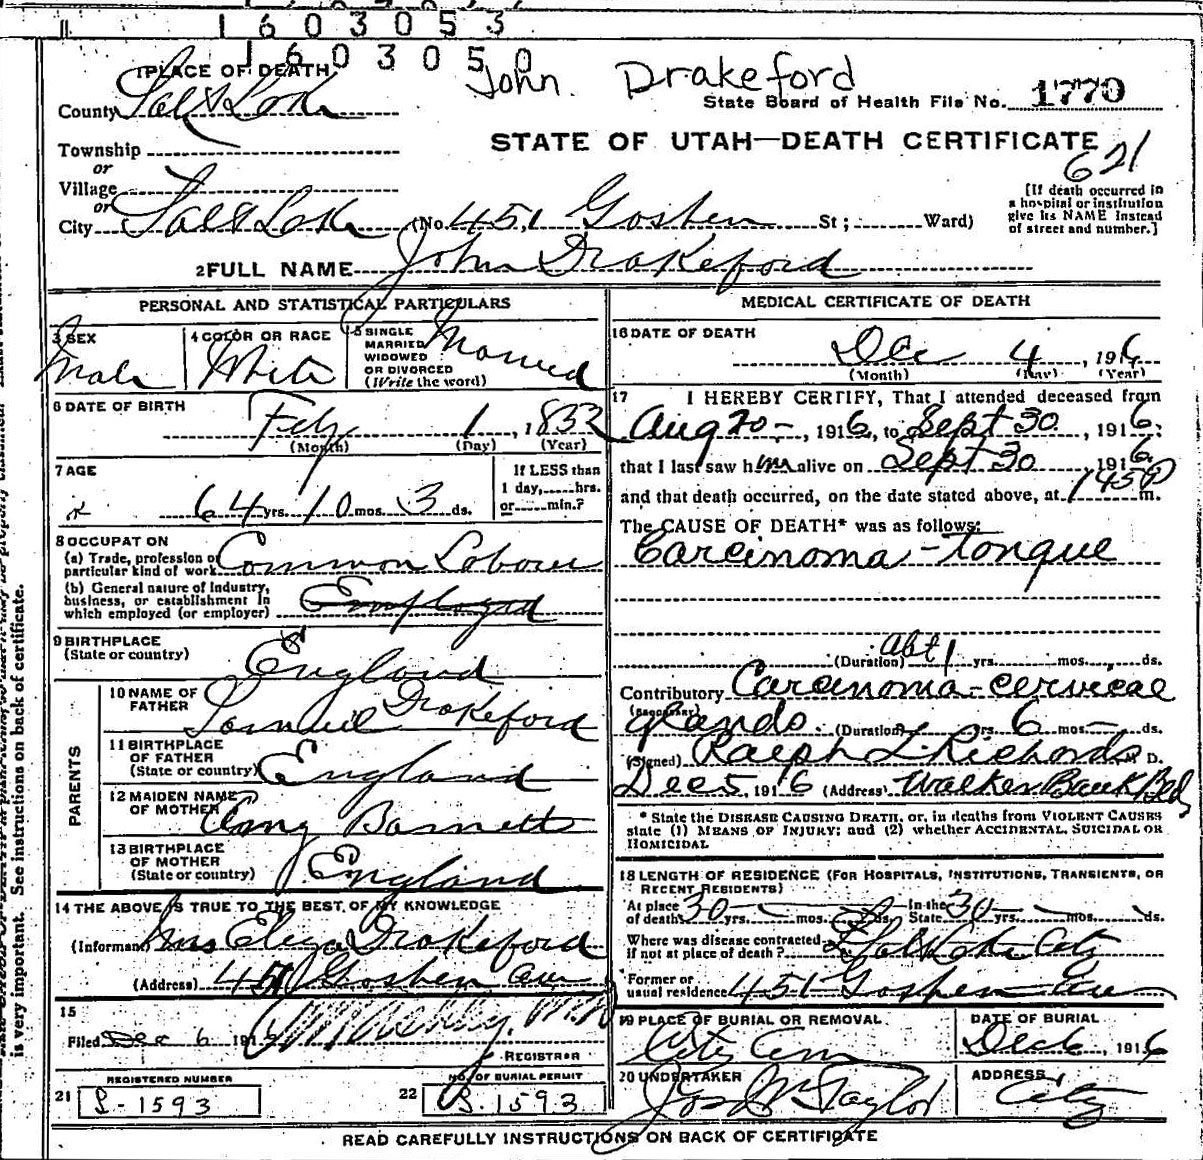 1603053
1603050
John Drakeford
1 PLACE OF DEATH
State Board of Health File No. 1770
County Salt Lake
STATE OF UTAH—DEATH CERTIFICATE
621
Township
or
Village
or
City Salt Lake (No. 451 Goshen St; Ward)
[If death occurred in
a hospital or institution
give its NAME instead
of street and number.]
2 FULL NAME John Drakeford
PERSONAL AND STATISTICAL PARTICULARS
3 SEX
Male
4 COLOR OR RACE
White
5 SINGLE
MARRIED
WIDOWED
OR DIVORCED
(Write the word)
Married
6 DATE OF BIRTH
Feby 1, 1852
(Month) (Day) (Year)
7 AGE
64 yrs. 10 mos. 3 ds.
If LESS than
1 day, hrs.
or min.?
8 OCCUPATION
(a) Trade, profession or
particular kind of work Common Laborer
(b) General nature of industry,
business, or establishment in
which employed (or employer) Employed
9 BIRTHPLACE
(State or country) England
PARENTS
10 NAME OF
FATHER Samuel Drakeford
11 BIRTHPLACE
OF FATHER
(State or country) England
12 MAIDEN NAME
OF MOTHER Barnett
13 BIRTHPLACE
OF MOTHER
(State or country) England
14 THE ABOVE IS TRUE TO THE BEST OF MY KNOWLEDGE
(Informant) Mrs Eliza Drakeford
(Address) 451 Goshen Ave
15
Filed Dec 6 1916
REGISTRAR
REGISTERED NUMBER
21 S-1593
NO. OF BURIAL PERMIT
22 S-1593
MEDICAL CERTIFICATE OF DEATH
16 DATE OF DEATH
Dec 4, 1916
(Month) (Day) (Year)
17 I HEREBY CERTIFY, That I attended deceased from
Aug 20-, 1916, to Sept 30, 1916,
that I last saw him alive on Sept 30 1916
and that death occurred, on the date stated above, at 145P m.
The CAUSE OF DEATH* was as follows:
Carcinoma - tongue
(Duration) abt 1 yrs. mos. ds.
Contributory Carcinoma - cervical
(Secondary)
glands. (Duration) yrs. 6 mos. - ds.
(Signed) Ralph L. Richards M. D.
Dec 5, 1916 (Address) Walker Bank Bldg
* State the DISEASE CAUSING DEATH, or, in deaths from VIOLENT CAUSES
state (1) MEANS OF INJURY; and (2) whether ACCIDENTAL, SUICIDAL OR
HOMICIDAL
18 LENGTH OF RESIDENCE (FOR HOSPITALS, INSTITUTIONS, TRANSIENTS, OR
RECENT RESIDENTS)
At place
of death 30 yrs. mos. ds. In the State 30 yrs. mos. ds.
Where was disease contracted
if not at place of death? Salt Lake City
Former or
usual residence 451 Goshen Ave
19 PLACE OF BURIAL OR REMOVAL
City Cem
DATE OF BURIAL
Dec 6, 1916
20 UNDERTAKER
Jos Wm Taylor
ADDRESS
City
READ CAREFULLY INSTRUCTIONS ON BACK OF CERTIFICATE
is very important. See instructions on back of certificate.